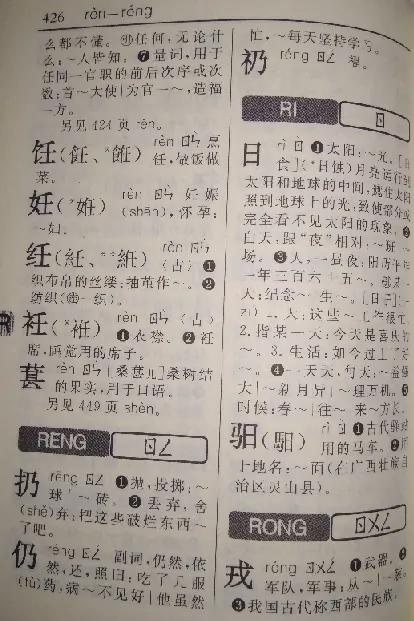 426 rèn—réng
么都不懂。㊁任何,无论什
么:~人皆知。❼量词,用于
任同一官职的前后次序或次
数:首~大使|为官一~,造福
一方。
另见 424 页 rén。
饪(飪、*餁) rèn ㄖㄣˋ 烹
饪,做饭做
菜。
妊(*姙) rèn ㄖㄣˋ 妊娠
(shēn),怀孕:
~妇。
纴(紝、*絍) rèn ㄖㄣˋ
(古) ❶
织布帛的丝缕:抽茧作~。❷
纺织(㊣—织)。
衽(*袵) rèn ㄖㄣˋ (古)
❶衣襟。❷衽
席,睡觉用的席子。
葚 rèn ㄖㄣˋ [桑葚儿]桑树结
的果实,用于口语。
另见 449 页 shèn。
RENG ㄖㄥ
扔 rēng ㄖㄥ ❶抛,投掷:~
球|~砖。❷丢弃,舍
(shě)弃:把这些破烂东西~
了吧。
仍 réng ㄖㄥˊ 副词,仍然,依
然,还,照旧:吃了几服
(fù)药,病~不见好|他虽然
忙,~每天坚持学习。
礽 réng ㄖㄥˊ 福。
RI ㄖ
日 rì ㄖˋ ❶太阳:~光。[日
食](*日蚀)月亮运行到
太阳和地球的中间,遮住太阳
照到地球上的光,致使部分或
完全看不见太阳的现象。❷
白天,跟“夜”相对:~班|~
场。❸天,一昼夜:阳历平年
一年三百六十五~。
人:纪念~|生~。[日子](-
zi) 1. 天:这些~工作很忙。
2. 指某一天:今天是喜庆的
~。3. 生活:如今过上了好
~。❹一天天,每天:~益强
大|~新月异|~理万机。❺
时候:春~|往~|来~方长。
驲(馹) rì ㄖˋ ❶古代驿站
用的马车。❷用
于地名:~面(在广西壮族自
治区灵山县)。
RONG ㄖㄨㄥ
戎 róng ㄖㄨㄥˊ ❶武器。❷
军队,军事:从~|~装。
❸我国古代称西部的民族。